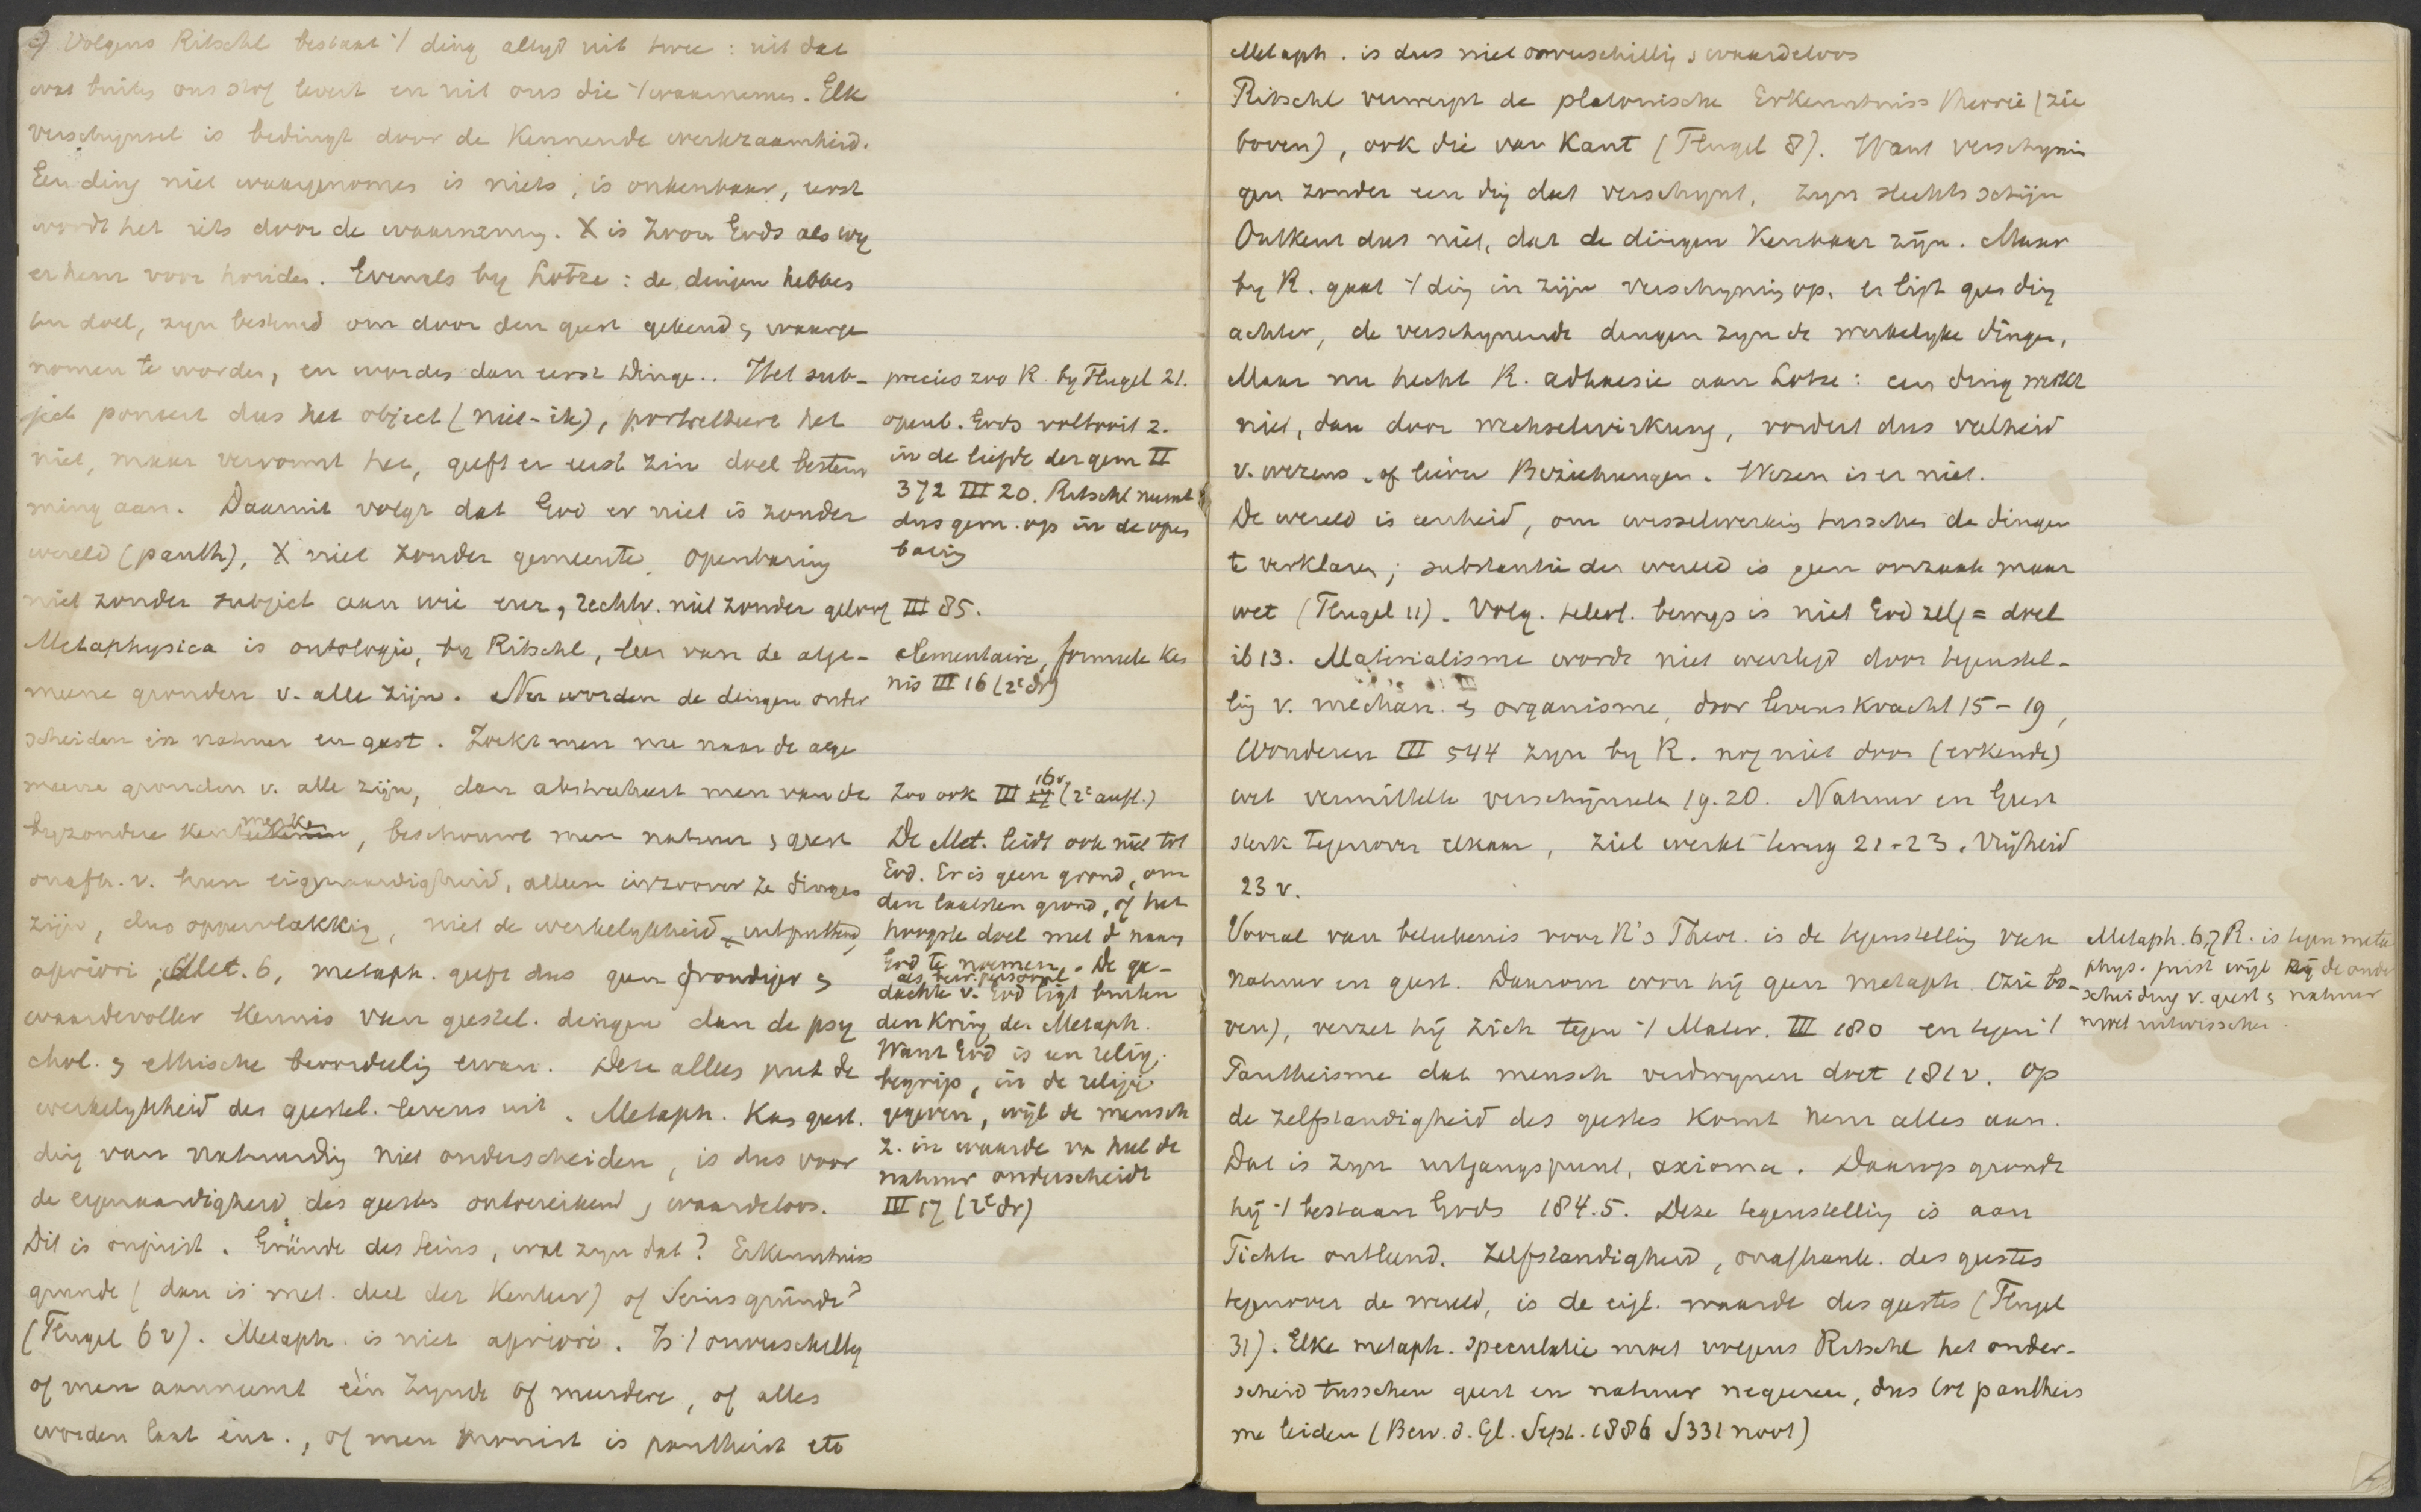 Volgens Ritschl bestaat ·/ ding altyd uit twee : uit dat
wat buiten ons stof levert en uit ons die ·/ waarnemen. Elk
verschynsel is bedingt door de kennende werkzaamheid.
Een ding niet waargenomen is niets, is onkenbaar, eerst
wordt het iets door de waarneming. X is Zoon Gods als wy
er hem voor houden. Evenals by Lotze : de dingen hebben
een doel, zyn bestemd om door den geest gekend & waarge
nomen te worden, en worden dan eerst Dinge.. Het sub-
ject poneert dus het object (niet-ik), portretteert het
niet, maar vervormt het, geeft er eerst zin doel bestem
ming aan. Daaruit volgt dat God er niet is zonder
wereld (panth), X niet zonder gemeente, openbaring
niet zonder subject aan wie enz, rechtv. niet zonder geloof
Metaphysica is ontologie, by Ritschl, leer van de alge-
meene gronden v. alle zijn. Nu worden de dingen onder
scheiden in natuur en geest. Zoekt men nu naar de alge
meene gronden v. alle zijn, dan abstraheert men van de
byzondere kenmerken, beschouwt men natuur & geest
onafh. v. hun eigenaardigheid, alleen inzoover ze dinges
zijn, dus oppervlakkig, niet de werkelykheid uitputtend
apriori, Met. 6, metaph. geeft dus geen grondiger &
waardevoller kennis van geestel. dingen dan de psy
chol. & ethische beoordeeling ervan. Deze alleen put de
werkelykheid des geestel. levens uit. Metaph. kan geest.
ding van natuurding niet onderscheiden, is dus voor
de eigenaardigheid des geestes ontoereikend, waardeloos.
Dit is onjuist. Gründe des Seins, wat zyn dat? Erkenntniss
grunde (dan is met. deel der kenleer) of Seinsgründe?
(Flugel 6 v). Metaph. is niet apriori. Is ·/ onverschillig
of men aanneemt één zynde of meerdere, of alles
worden laat enz., of men monist is pantheist etc
precies zoo R. by Flugel 21.
openb. Gods voltooit z.
in de liefde der gem II
372 III 20. Ritschl neemt
dus gem. op in de open
baring
III 85.
elementaire, formeele ken
nis III 16 (2e dr)
zoo ook III 16v (2e aufl.)
De Met. leidt ook niet tot
God. Er is geen grond, om
den laatsten grond, of het
hoogste doel met d naam
God te noemen. De ge-
dachte v. God ligt buiten
den kring der Metaph.
Want God is een relig.
begrip, in de religie
gegeven, wijl de mensch
z. in waarde van heel de
natuur onderscheidt
III 17 (2e dr)
Metaph. is dus niet onverschillig & waardeloos
Ritschl verwerpt de platonische Erkenntniss theorie (zie
boven), ook die van Kant (Flugel 8). Want verschynin
gen zonder een ding dat verschynt, zyn slechts schijn
Ontkent dus niet, dat de dingen kenbaar zijn. Maar
by R. gaat ·/ ding in zijn verschyning op, er ligt geen ding
achter, de verschynende dingen zyn de werkelyke dingen,
Maar nu hecht R. adhaesie aan Lotze : een ding werkt
niet, dan door wechselwirkung, vordert dus veelheid
v. wezens of liever Beziehungen. Wezen is er niet.
De wereld is eenheid, om wisselwerking tusschen de dingen
t verklaren; substantie der wereld is geen oorzaak maar
wet (Flugel 11). Volg. teleol. bewys is niet God zelf = doel
ib 13. Materialisme wordt niet weerlegd door tegenstel-
ling v. mechan. & organisme, door levenskracht 15-19,
Wonderen III 544 zyn by R. nog niet door (erkende)
wet vermittelte verschijnselen 19.20. Natuur en Geest
sterk tegenover elkaar, ziel werkt terug 21-23. Vrijheid
23 v.
Vooral van beteekenis voor R's Theol. is de tegenstelling van
natuur en geest. Daarom geen metaph. (zie bo-
ven), verzet hij zich tegen ·/ Mater. III 180 en tegen ·/
Pantheisme dat mensch verdwynen doet 181 v. Op
de zelfstandigheid des geestes komt hem alles aan.
Dat is zyn uitgangspunt, axioma. Daarop grondt
hij ·/ bestaan Gods 184.5. Deze tegenstelling is aan
Fichte ontleend. Zelfstandigheid, onafhank. des geestes
tegenover de wereld, is de eigl. waarde des geestes (Flugel
31). Elke metaph. speculatie moet volgens Ritschl het onder-
scheid tusschen geest en natuur negeeren, dus tot pantheis
me leiden (Bew. d. Gl. Sept. 1886 S 331 noot)
Metaph. 6,7 R. is tegen meta
phys. juist wijl zij de onder
scheiding v. geest & natuur
moet uitwisschen.